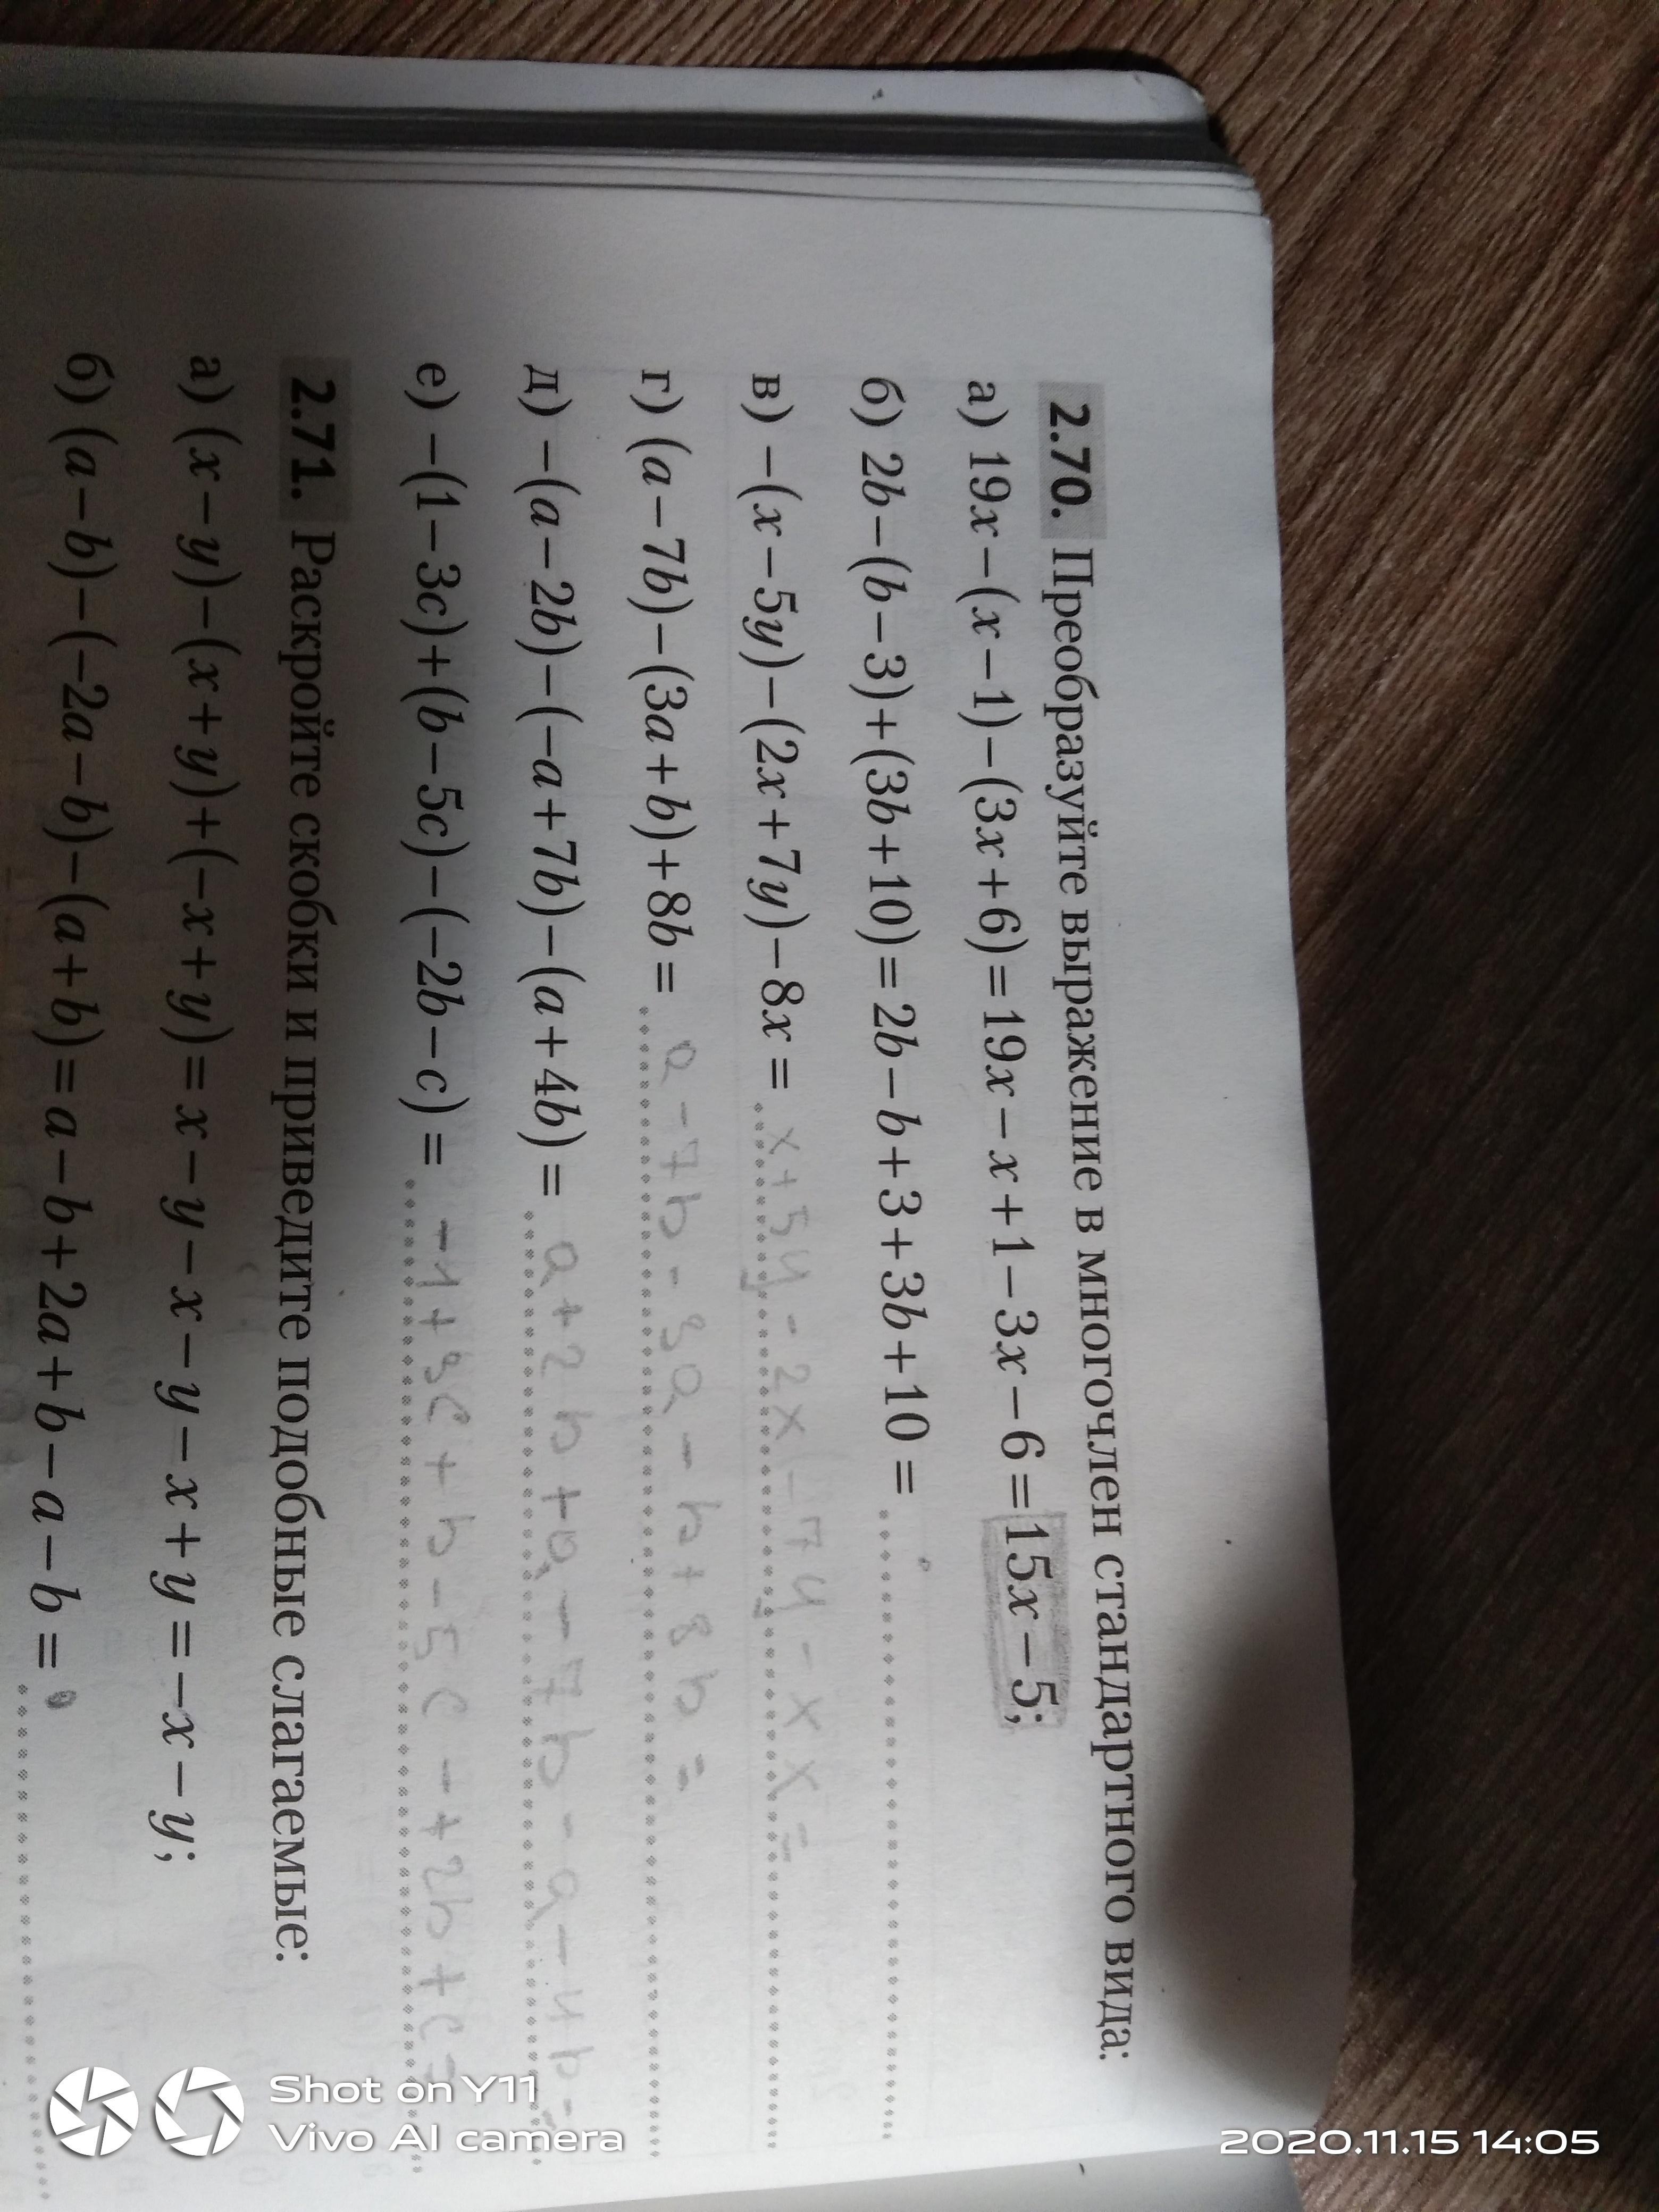 2.70. Преобразуйте выражение в многочлен стандартного вида:
а) 19x−(x−1)−(3x+6)=19x−x+1−3x−6=15x−5;
б) 2b−(b−3)+(3b+10)=2b−b+3+3b+10=
в) −(x−5y)−(2x+7y)−8x= x+5y-2x-7y-x x=
г) (a−7b)−(3a+b)+8b= a-7b-3a-b+8b=
д) −(a−2b)−(−a+7b)−(a+4b)= a+2b+a-7b-a-4b=
е) −(1−3c)+(b−5c)−(−2b−c)= -1+3c+b-5c-+2b+c=
2.71. Раскройте скобки и приведите подобные слагаемые:
а) (x−y)−(x+y)+(−x+y)=x−y−x−y−x+y=−x−y;
б) (a−b)−(−2a−b)−(a+b)=a−b+2a+b−a−b=
Shot on Y11
Vivo AI camera
2020.11.15 14:05